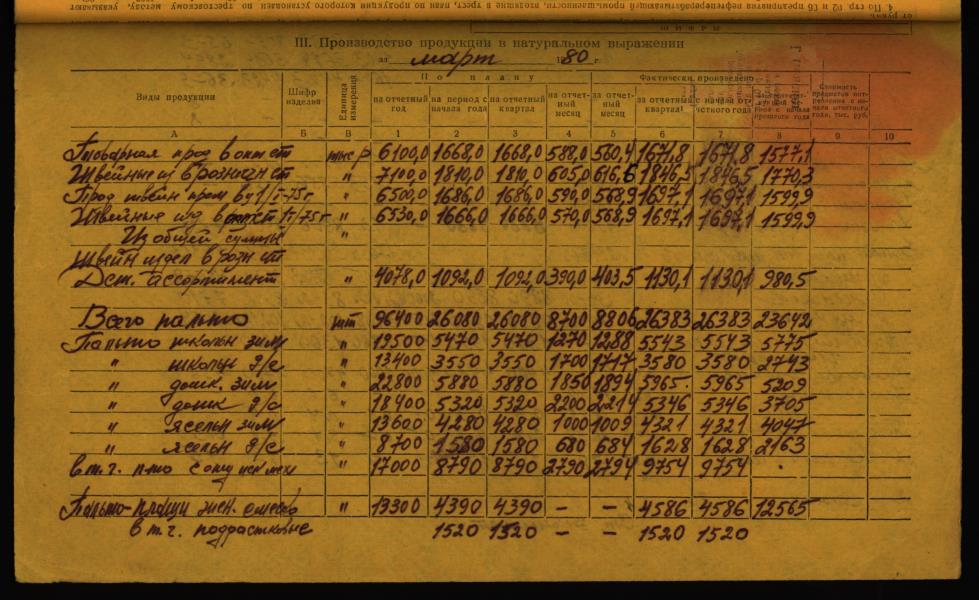 4. По стр. 02 и 06 предприятия нефтеперерабатывающей промышленности, входящие в трест, план по продукции которого установлен по тресту
III. Производство продукции в натуральном выражении
за март 1980 г.
Виды продукции Шифр изделий Единица измерения По плану Фактически произведено
на отчетный год на период с начала года на отчетный квартал на отчетный месяц за отчетный месяц за отчетный квартал с начала отчетного года
А Б В 1 2 3 4 5 6 7 8 9 10
Товарная прод в опт ст тыс р 6100,0 1668,0 1668,0 588,0 560,4 1671,8 1671,8 1577,1
Швейные из в рознич ст " 7100,0 1810,0 1810,0 605,0 616,6 1846,5 1846,5 1770,3
Прод швейн пром в ц 1/I-75 г " 6500,0 1686,0 1686,0 590,0 568,9 1697,1 1697,1 1599,9
Швейные изд в опт ст 1/I/75 г " 6530,0 1666,0 1666,0 570,0 568,9 1697,1 1697,1 1599,9
Из общей суммы "
Швейн издел в розн ст
Дет. ассортимент " 4078,0 1092,0 1092,0 390,0 403,5 1130,1 1130,1 980,5
Всего пальто шт 96400 26080 26080 8700 8806 26383 26383 23642
Пальто школьн зим " 19500 5470 5470 1270 1288 5543 5543 5775
" школьн д/с " 13400 3550 3550 1700 1717 3580 3580 2743
" дошк. зим " 22800 5880 5880 1850 1894 5965 5965 5209
" дошк д/с " 18400 5320 5320 2200 2214 5346 5346 3705
" ясельн зим " 13600 4280 4280 1000 1009 4321 4321 4047
" ясельн д/с " 8700 1580 1580 680 684 1628 1628 2163
в т.г. п-то с опуш иск мех " 17000 8790 8790 2790 2794 9754 9754
Пальто-плащи жен. " 13300 4390 4390 – – 4586 4586 12565
в т.г. подрастковые 1520 1520 – – 1520 1520